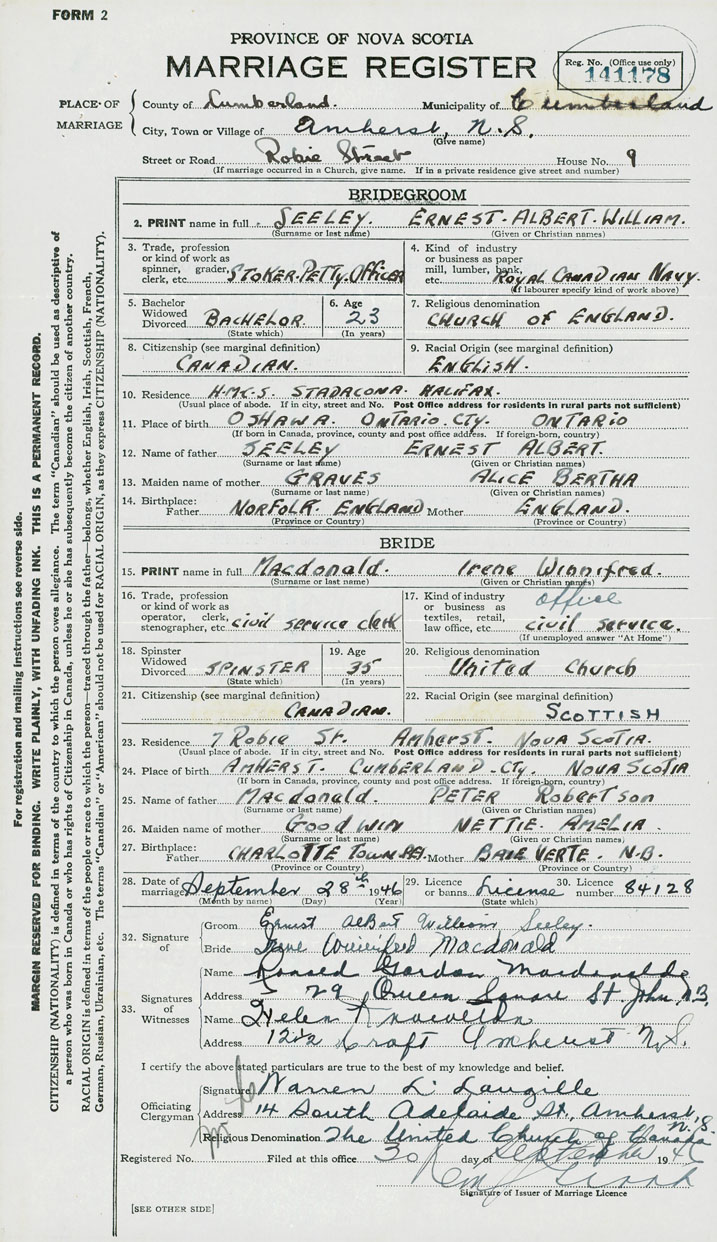 FORM 2
PROVINCE OF NOVA SCOTIA
MARRIAGE REGISTER
Reg. No. (Office use only)
141178
PLACE OF MARRIAGE
County of Cumberland. Municipality of Cumberland
City, Town or Village of Amherst, N.S.
(Give name)
Street or Road Robie Street House No. 9
(If marriage occurred in a Church, give name. If in a private residence give street and number)
BRIDEGROOM
2. PRINT name in full SEELEY. ERNEST. ALBERT. WILLIAM.
(Surname or last name) (Given or Christian names)
3. Trade, profession or kind of work as spinner, grader, clerk, etc. STOKER. PETTY. OFFICER
4. Kind of industry or business as paper mill, lumber, bank, etc. ROYAL CANADIAN NAVY.
(If labourer specify kind of work above)
5. Bachelor Widowed Divorced BACHELOR.
(State which)
6. Age 23
(In years)
7. Religious denomination CHURCH OF ENGLAND.
8. Citizenship (see marginal definition) CANADIAN.
9. Racial Origin (see marginal definition) ENGLISH.
10. Residence H.M.C.S. STADACONA. HALIFAX.
(Usual place of abode. If in city, street and No. Post Office address for residents in rural parts not sufficient)
11. Place of birth OSHAWA. ONTARIO. CTY. ONTARIO
(If born in Canada, province, county and post office address. If foreign-born, country)
12. Name of father SEELEY ERNEST ALBERT.
(Surname or last name) (Given or Christian names)
13. Maiden name of mother GRAVES ALICE BERTHA
(Surname or last name) (Given or Christian names)
14. Birthplace: Father NORFOLK. ENGLAND Mother ENGLAND.
(Province or Country) (Province or Country)
BRIDE
15. PRINT name in full Macdonald. Irene Winnifred.
(Surname or last name) (Given or Christian names)
16. Trade, profession or kind of work as operator, clerk, stenographer, etc. civil service clerk
17. Kind of industry or business as textiles, retail, law office, etc. office civil service.
(If unemployed answer "At Home")
18. Spinster Widowed Divorced SPINSTER
(State which)
19. Age 35
(In years)
20. Religious denomination United Church
21. Citizenship (see marginal definition) CANADIAN.
22. Racial Origin (see marginal definition) SCOTTISH
23. Residence 7 Robie St. Amherst. Nova Scotia.
(Usual place of abode. If in city, street and No. Post Office address for residents in rural parts not sufficient)
24. Place of birth AMHERST. CUMBERLAND - CTY. NOVA SCOTIA
(If born in Canada, province, county and post office address. If foreign-born, country)
25. Name of father Macdonald. PETER Robertson
(Surname or last name) (Given or Christian names)
26. Maiden name of mother GOODWIN NETTIE. AMELIA.
(Surname or last name) (Given or Christian names)
27. Birthplace: Father CHARLOTTETOWN PEI. Mother BAIE VERTE. N.B.
(Province or Country) (Province or Country)
28. Date of marriage September 28th 1946
(Month by name) (Day) (Year)
29. License or banns License
(State which)
30. Licence number 84128
32. Signature of
Groom Ernest Albert William Seeley.
Bride Irene Winnifred Macdonald
33. Signatures of Witnesses
Name Ronald Gordon Macdonald
Address 29 Queen Square St. John, N.B.
Name Helen Knowlton
Address 12 1/2 Croft Amherst N.S.
I certify the above stated particulars are true to the best of my knowledge and belief.
Officiating Clergyman
Signature Warren L. Langille
Address 14 South Adelaide St., Amherst, N.S.
Religious Denomination The United Church of Canada
Registered No. Filed at this office 30 day of September 1946
Signature of Issuer of Marriage Licence
[SEE OTHER SIDE]
For registration and mailing instructions see reverse side.
MARGIN RESERVED FOR BINDING. WRITE PLAINLY, WITH UNFADING INK. THIS IS A PERMANENT RECORD.
CITIZENSHIP (NATIONALITY) is defined in terms of the country to which the person owes allegiance. The term "Canadian" should be used as descriptive of
a person who was born in Canada or who has rights of Citizenship in Canada, unless he or she has subsequently become the citizen of another country.
RACIAL ORIGIN is defined in terms of the people or race to which the person—traced through the father—belongs, whether English, Irish, Scottish, French,
German, Russian, Ukrainian, etc. The terms "Canadian" or "American" should not be used for RACIAL ORIGIN, as they express CITIZENSHIP (NATIONALITY).